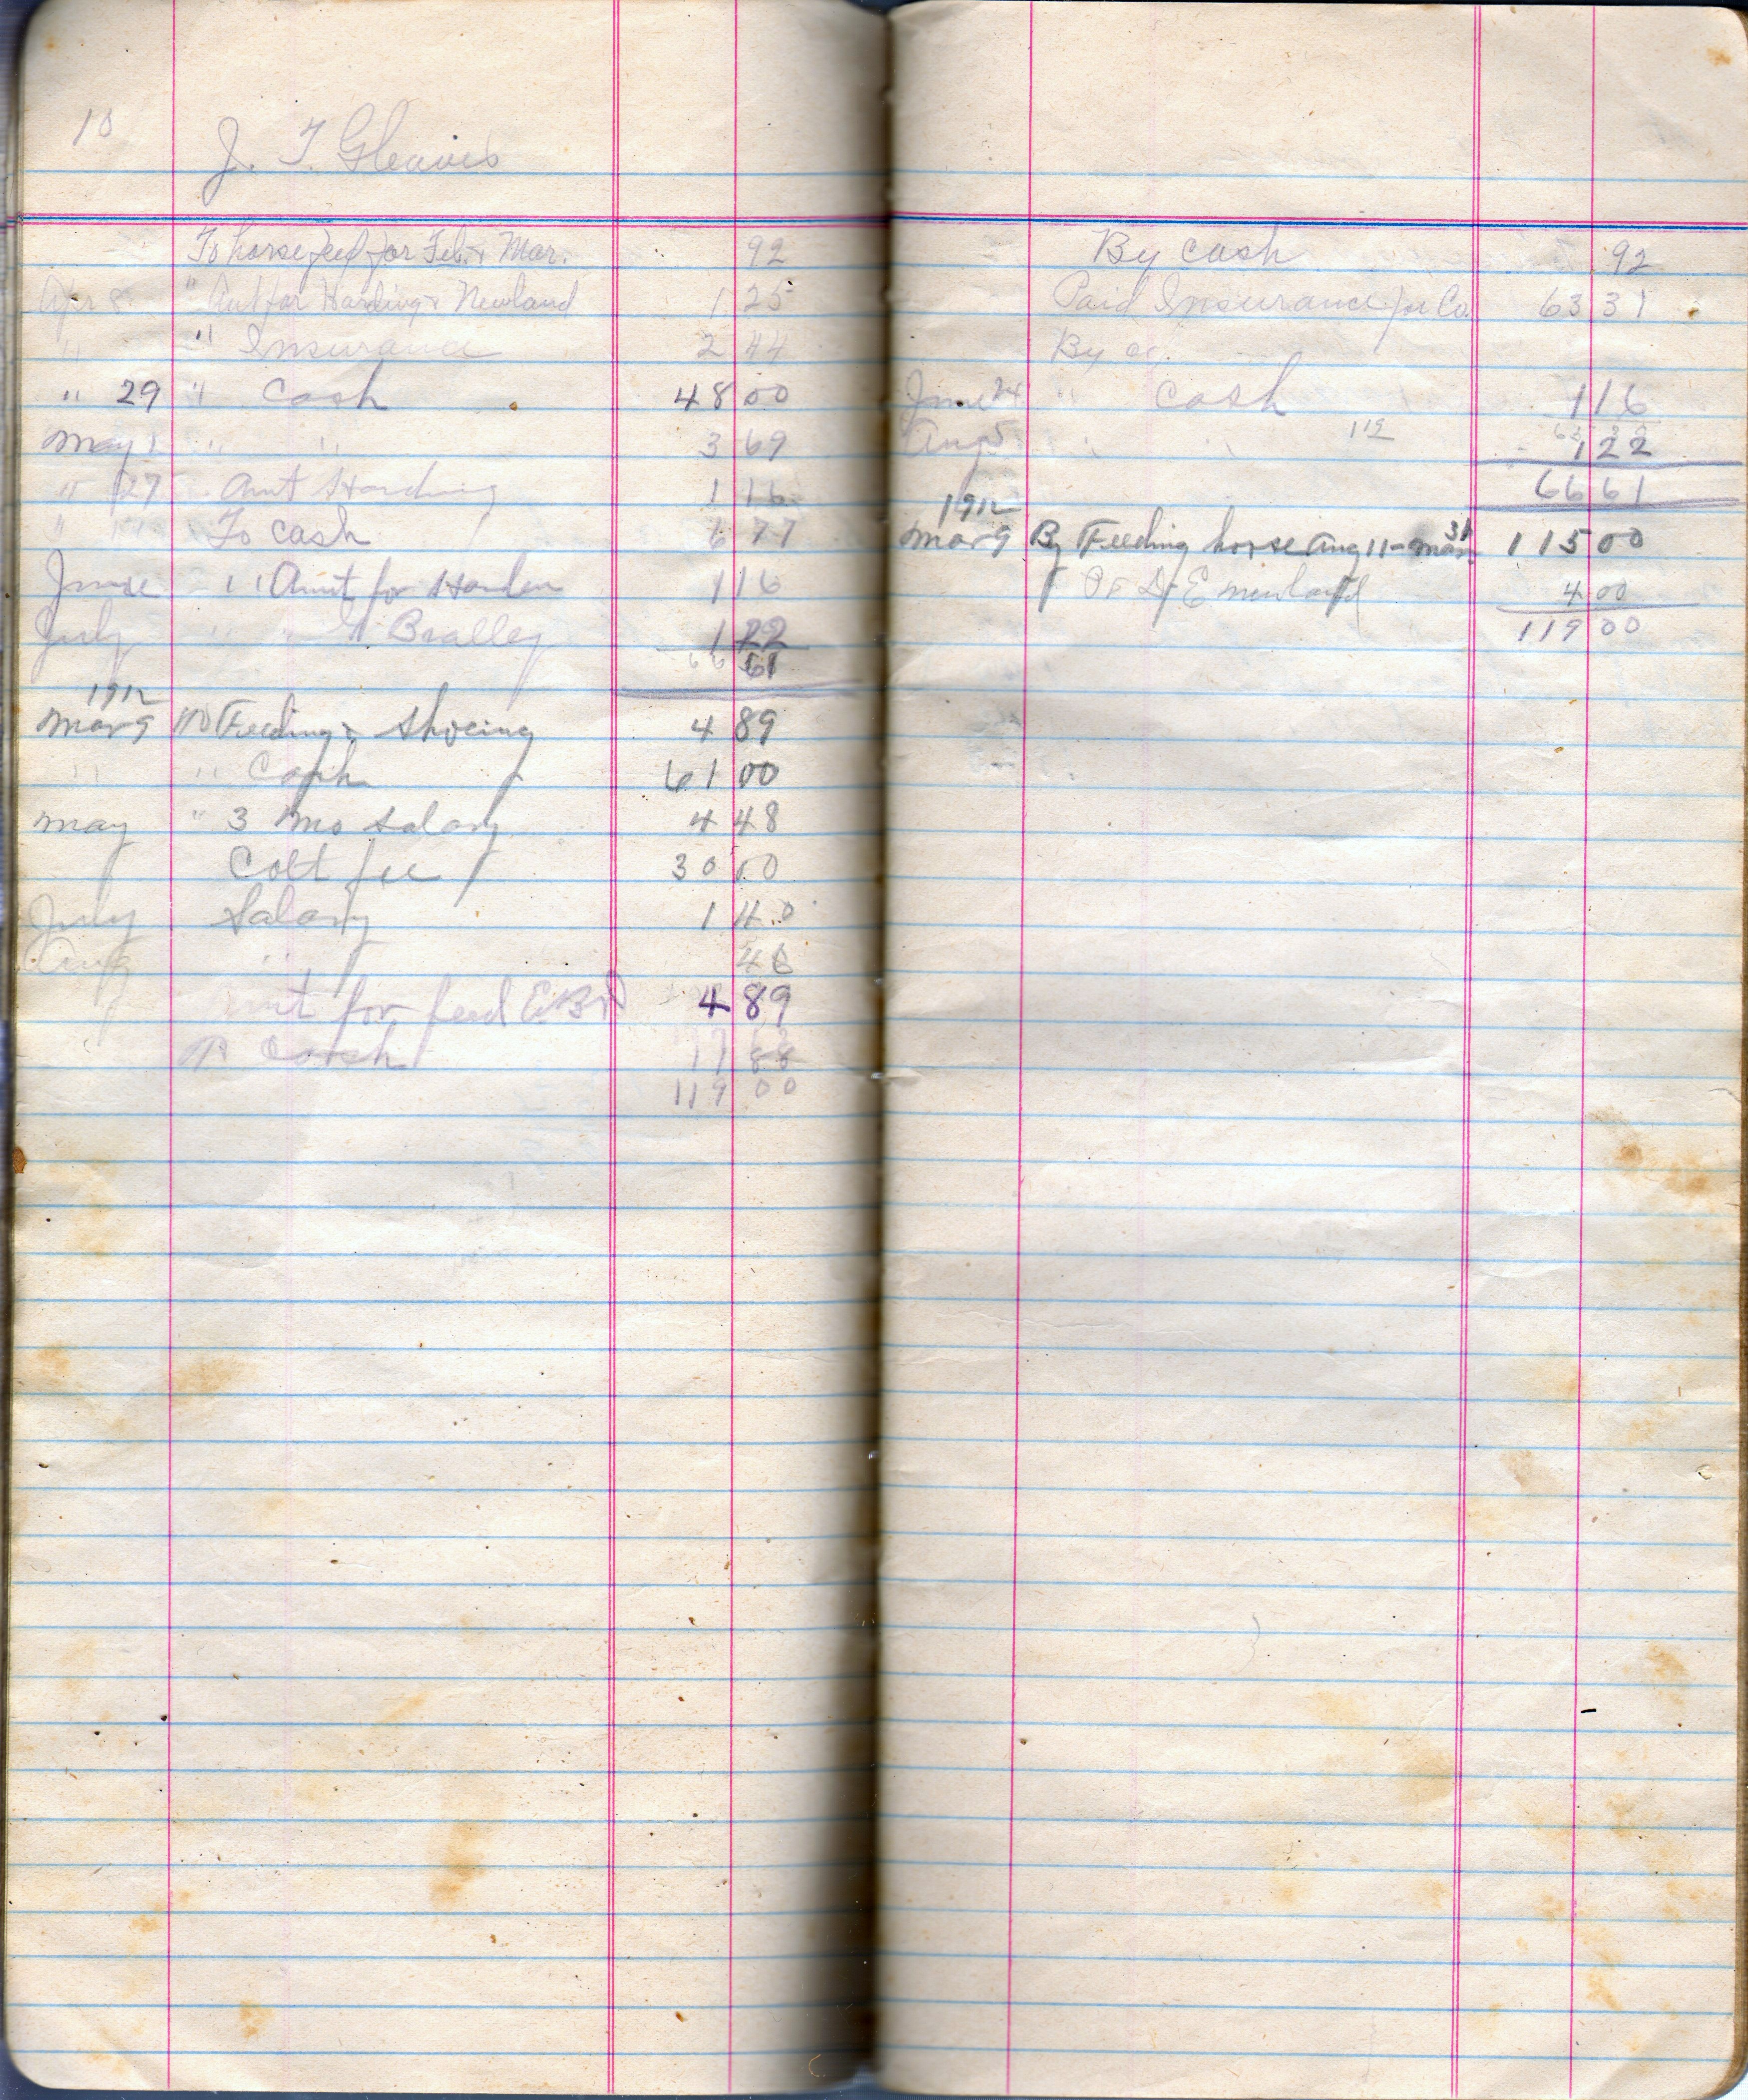 10
J. T. Gleaves
To horse feed for Feb. & Mar. 92
Apr 8 " Amt for Harding & Newland 1 25
" " Insurance 2 44
" 29 " Cash 48 00
May 1 " " 3 69
" 27 Amt Harding 1 16
" To cash 6 77
June " Amt for Harden 1 16
July " " Bralley 1 22
66 61
1912
Mar 9 To Feeding & Shoeing 4 89
" " Cash 61 00
May " 3 Mo Salary 4 48
Colt fee 30 00
July Salary 1 40
Aug "
for feed 4 89
Cash 17 88
119 00
By cash 92
Paid Insurance for Co. 63 31
By
June 24 " Cash 1 16
Aug 5 " " 1 22
66 61
1912
Mar 9 By Feeding horse Aug 11 - Mar 31 115 00
D E Newland 4 00
119 00